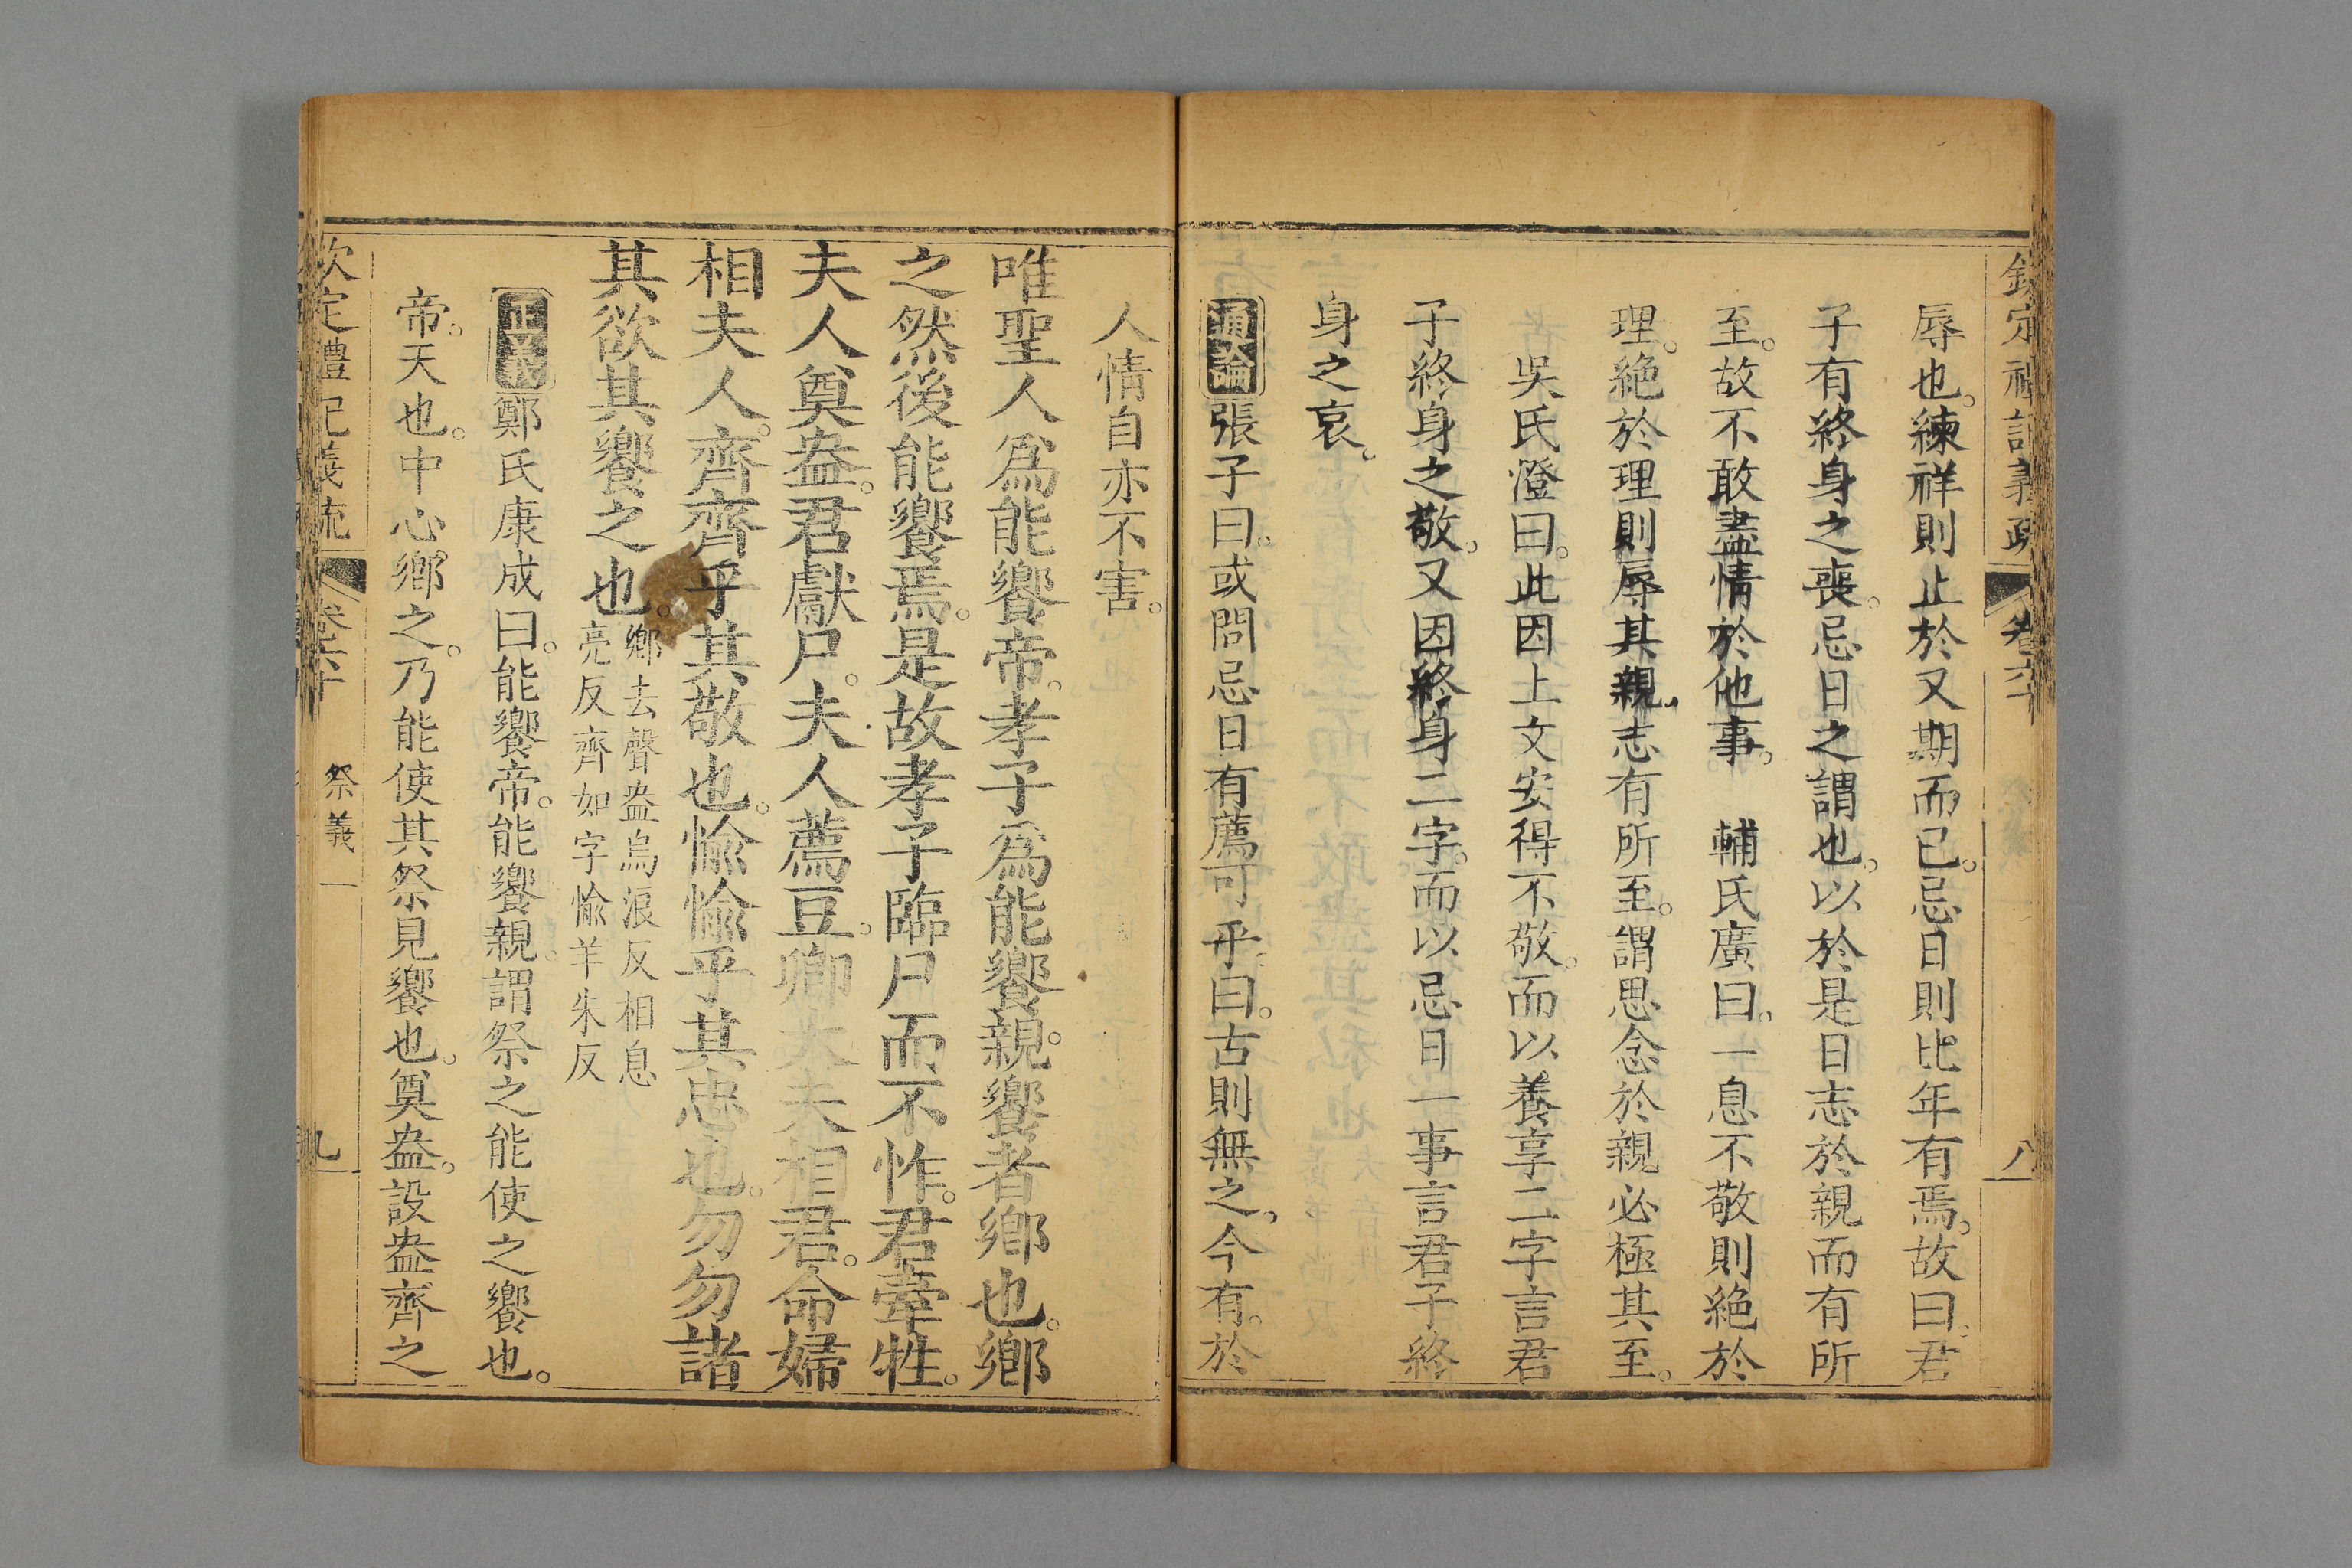 欽定禮記義疏 卷六十 八
辱也。練祥則止於又期而已。忌日則比年有焉。故曰。君
子有終身之喪。忌日之謂也。以於是日志於親而有所
至。故不敢盡情於他事。 輔氏廣曰。一息不敬則絶於
理。絶於理則辱其親。志有所至。謂思念於親必極其至。
吳氏澄曰。此因上文安得不敬。而以養享二字言君
子終身之敬。又因終身二字。而以忌日一事言君子終
身之哀。
通論張子曰。或問忌日有薦可乎。曰。古則無之。今有。於
人情自亦不害。
唯聖人爲能饗帝。孝子爲能饗親。饗者鄉也。鄉
之然後能饗焉。是故孝子臨尸而不怍。君牽牲。
夫人奠盎。君獻尸。夫人薦豆。卿大夫相君。命婦
相夫人。齊齊乎其敬也。愉愉乎其忠也。勿勿諸
其欲其饗之也。鄉去聲盎烏浪反相息
亮反齊如字愉羊朱反
正義鄭氏康成曰。能饗帝。能饗親。謂祭之能使之饗也。
帝。天也。中心鄉之。乃能使其祭見饗也。奠盎。設盎齊之
欽定禮記義疏 卷六十 祭義一 九